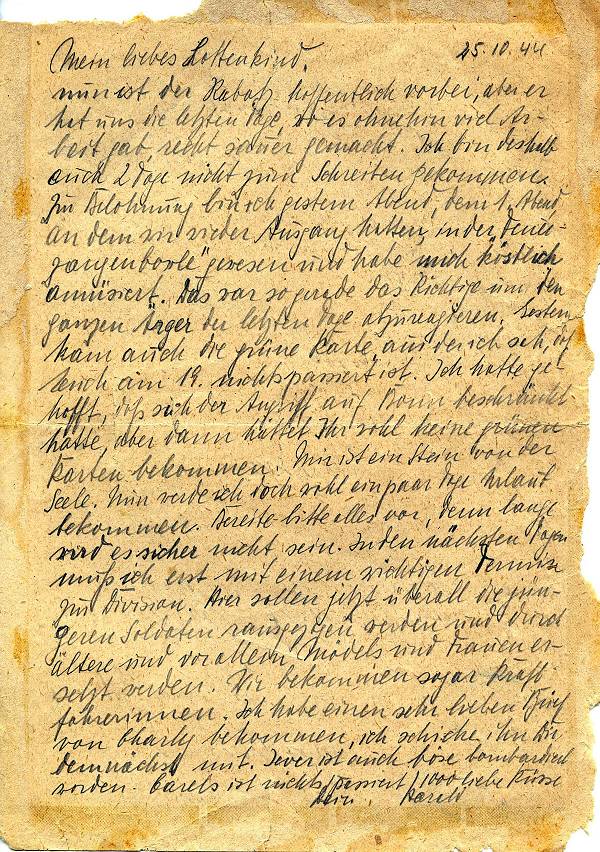 Mein liebes Lottenkind. 25.10.44
nun ist der Rabatz hoffentlich vorbei, aber er
hat uns die letzten Tage, wo es ohnehin viel Ar-
beit gab, recht sauer gemacht. Ich bin deshalb
auch 2 Tage nicht zum Schreiben gekommen.
Zur Belohnung bin ich gestern Abend, dem 1. Abend,
an dem wir wieder Ausgang hatten, in der
gewesen und habe mich köstlich
amüsiert. Das war so gerade das Richtige um den
ganzen Ärger der letzten Tage abzureagieren. Gestern
kam auch die grüne Karte, aus der ich seh, daß
Euch am 19. nichts passiert ist. Ich hatte ge-
hofft, daß sich der Angriff auf Bonn beschränkt
hätte, aber dann hättet Ihr wohl keine grünen
Karten bekommen. Mir ist ein Stein von der
Seele. Nun werde ich doch wohl ein paar Tage Urlaub
bekommen. Bereite bitte alles vor, denn lange
wird es sicher nicht sein. In den nächsten Tagen
muß ich erst mit einem wichtigen
zur Division. Hier sollen jetzt überall die jün-
geren Soldaten rausgezogen werden und durch
ältere und vor allem Mädels und Frauen er-
setzt werden. Wir bekommen sogar Kraft-
fahrerinnen. Ich habe einen sehr lieben Brief
von Charly bekommen, ich schicke ihn Dir
demnächst mit. Jever ist auch böse bombardiert
worden. Carels ist nichts passiert. 1000 liebe Küsse
Dein Harald